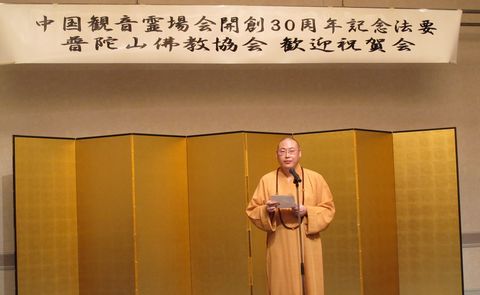 中国観音霊場会開創30周年記念法要
普陀山佛教協会 歓迎祝賀会